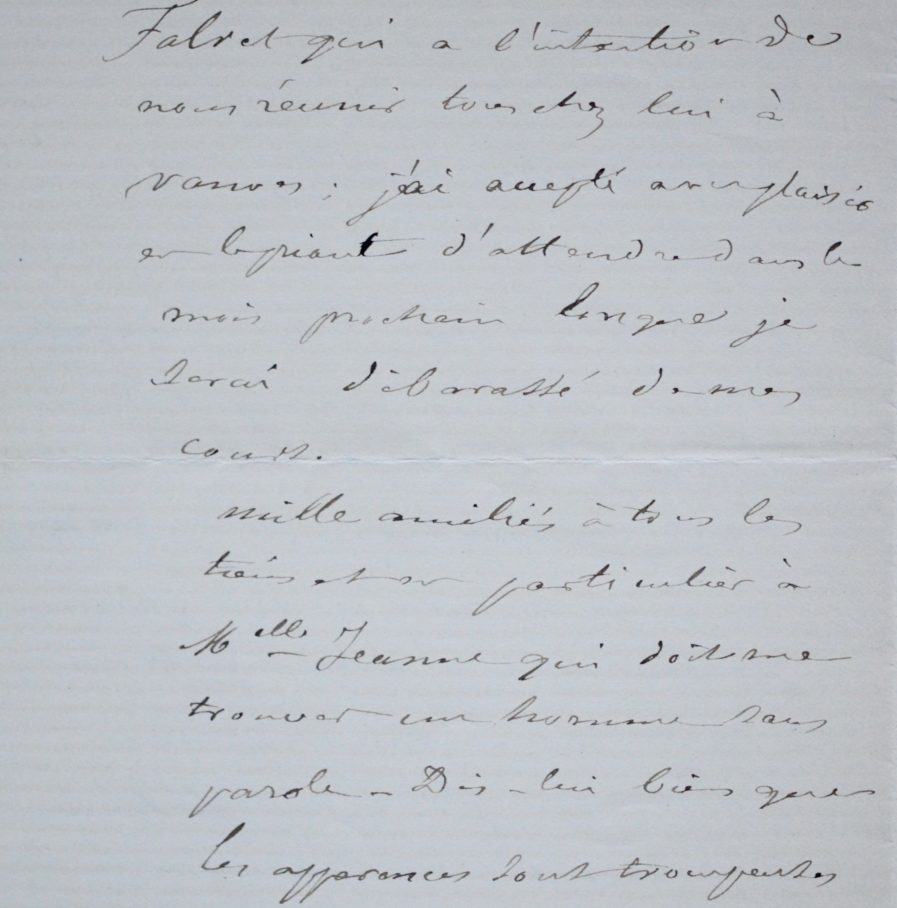 Falret qui a l'intention de
nous réunir tous chez lui à
vanves ; j'ai accepté avec plaisir
en le priant d'attendre dans le
mois prochain lorsque je
serai débarassé de mes
cours.
mille amitiés à tous les
tiens et en particulier à
Melle Jeanne qui doit me
trouver un homme sans
parole – Dis-lui bien que
les apparences sont trompeuses